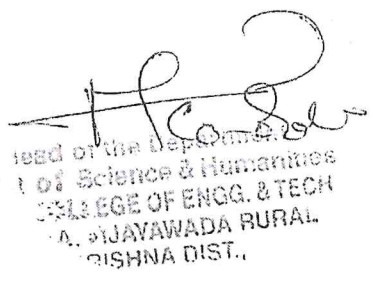 Head of the Department
of Science & Humanities
COLLEGE OF ENGG. & TECH
VIJAYAWADA RURAL
KRISHNA DIST.,